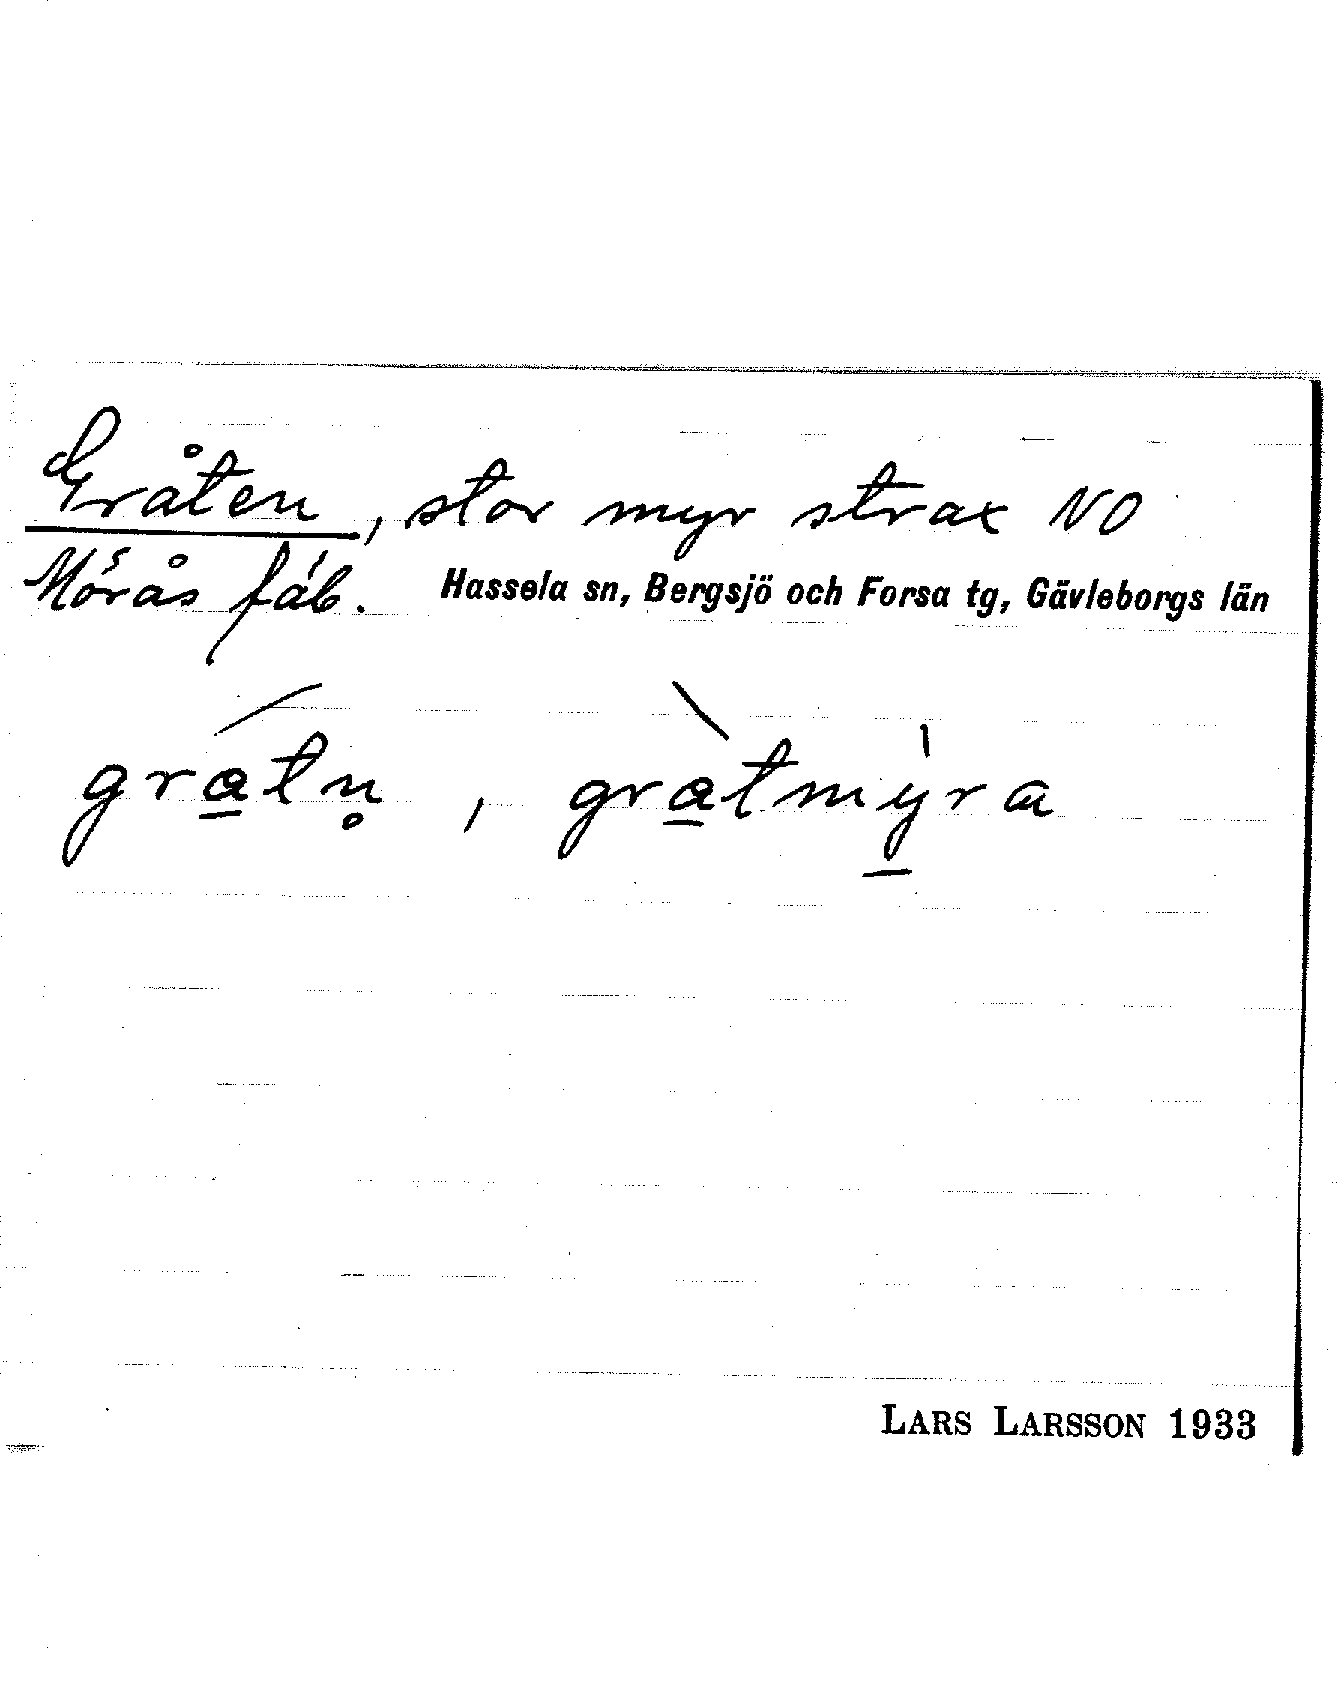 Gråten, stor myr strax NO
Mörås fäb. Hassela sn, Bergsjö och Forsa tg, Gävleborgs län
gra̲tn̥, gra̲tmy̲ra
LARS LARSSON 1933